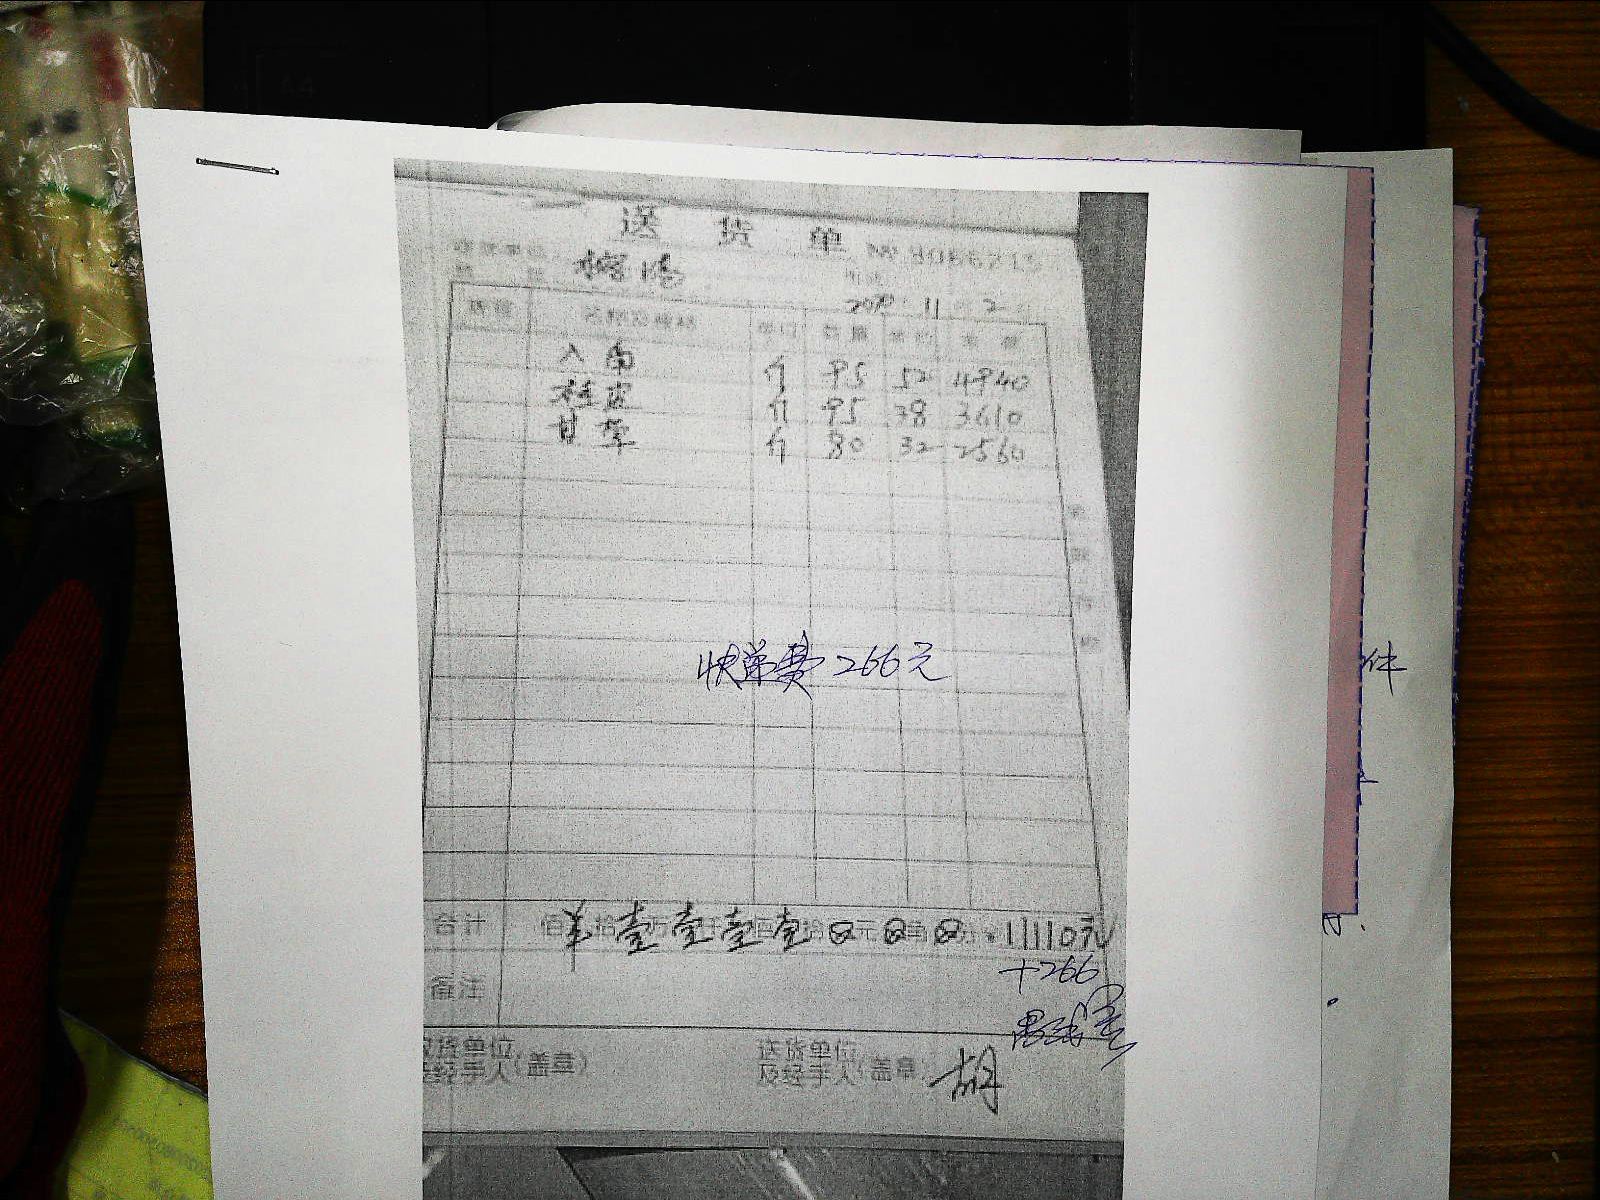 送 货 单
2 11 2
单位 数量 单价 金额
八角 斤 95 52 4940
桂皮 斤 95 38 3610
甘草 斤 80 32 2560
快递费 266元
件
合计 佰 拾 万 仟 佰 拾 元 角 分 ¥ 壹 壹 壹 壹 ⊗ ⊗ ⊗ 11110元
+266
备注
收货单位
及经手人(盖章)
送货单位
及经手人(盖章)
胡